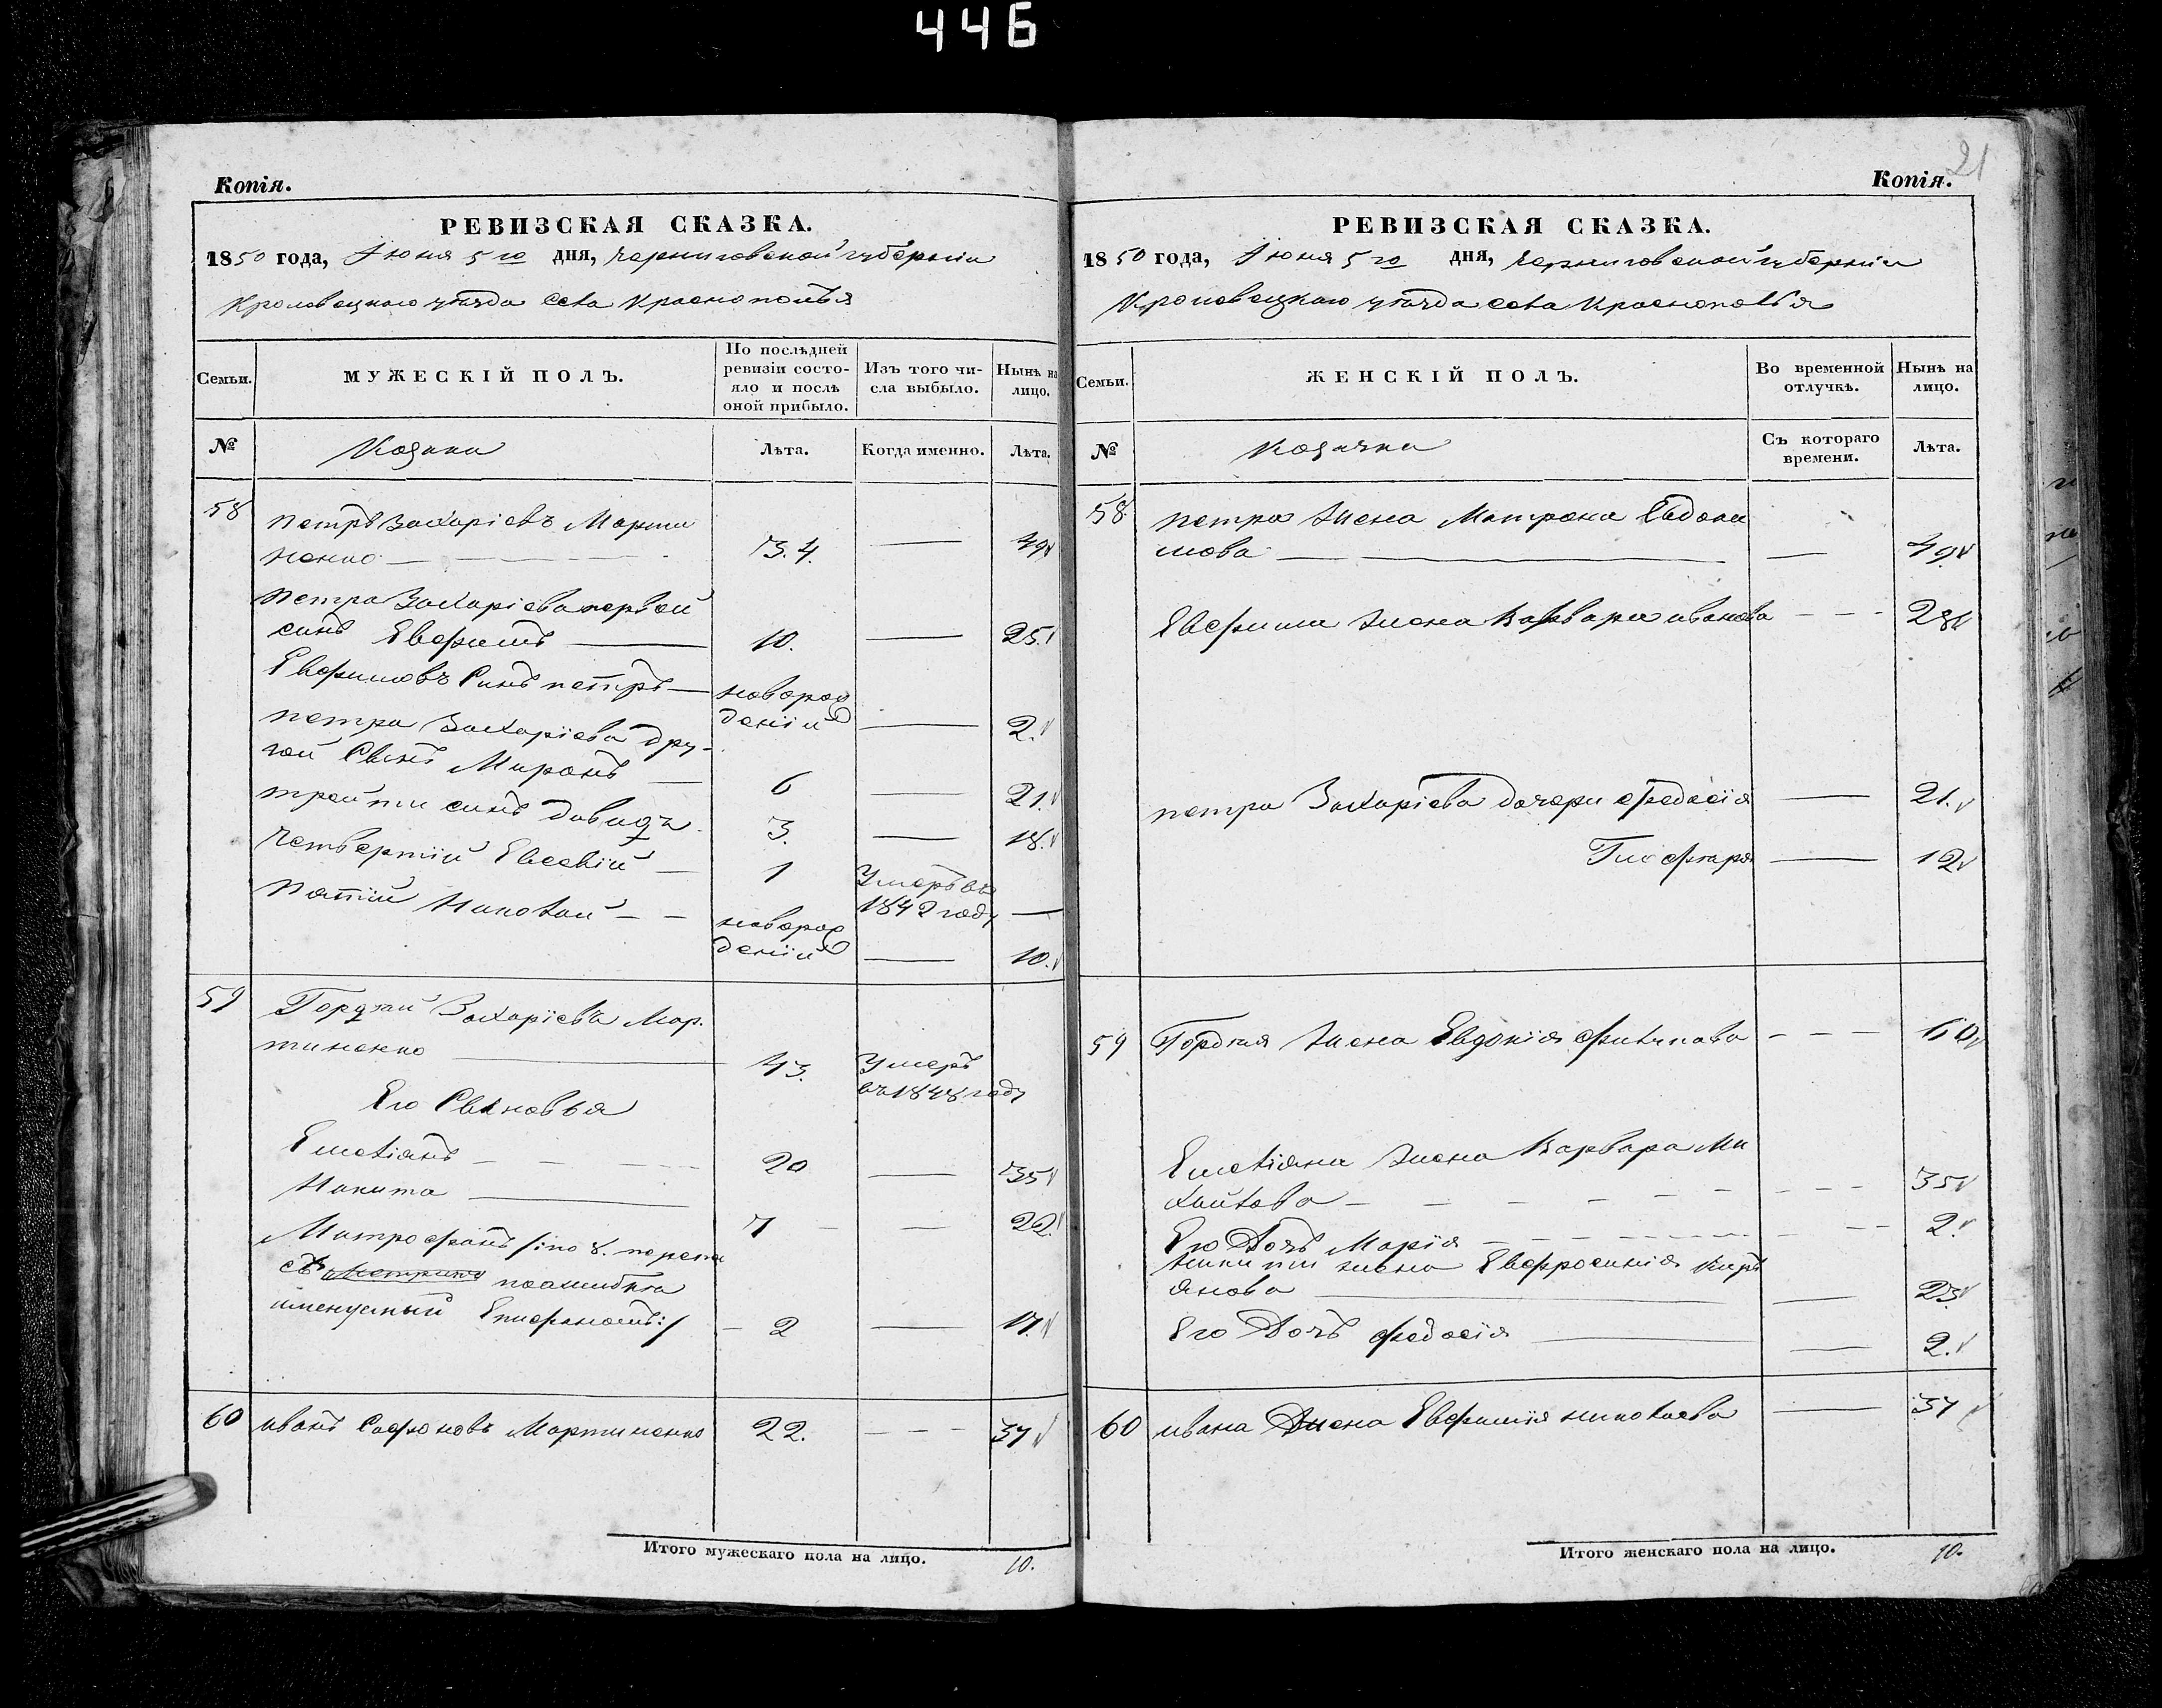 446
21
Копія.
РЕВИЗСКАЯ СКАЗКА.
1850 года, Іюня 5го дня, Черниговской губерніи
Кролевецкаго уѣзда села Краснополья
Семьи.
МУЖЕСКІЙ ПОЛЪ.
По послѣдней
ревизіи состо-
яло и послѣ
оной прибыло.
Изъ того чи-
сла выбыло.
Нынѣ на
лицо.
№
Козаки
Лѣта.
Когда именно.
Лѣта.
58
петръ Захаріевъ Марти
ненко
3.4.
49
петра Захаріева первой
синъ Евфимъ
10.
25.
Евфимовъ Синъ петръ
новорож
деній
2.
петра Захаріева дру-
гой Сынъ Миронъ
6
21.
третти синъ давидъ
3.
18.
Четвертій Евсевій
1
Умеръ въ
1842 году
Пятій Николай
новорож
деній
10.
59
Гордѣй Захаріевъ Мар-
тиненко
43.
Умеръ
въ 1848 году
Его Сыновья
Емеліянъ
20
35
Никита
7
22.
Митрофанъ /:по 8. перепи
сѣ поошибкѣ
именуемый Епифаномъ:/
2
17.
60
иванъ Сафоновъ Мартиненко
22.
37
Итого мужескаго пола на лицо.
10.
Копія.
РЕВИЗСКАЯ СКАЗКА.
1850 года, Іюня 5го дня, Черниговской губерніи
Кролевецкаго уѣзда села Краснополья
Семьи.
ЖЕНСКІЙ ПОЛЪ.
Во временной
отлучкѣ.
Нынѣ на
лицо.
№
Козачки
Съ котораго
времени.
Лѣта.
58
петра жена Матрона Евдоки
мова
49
Евфима жена Варвара иванова
28
петра Захаріева дочери федосія
21.
Гликерія
12
59
Гордѣя жена Евдокія филипова
60
Емеліяна жена Варвара Ми
хайлова
35
Его Дочь Марія
2.
никити жена Евфросинія Кирь
янова
23
Его Дочь федосія
2.
60
ивана жена Евфимія николаева
37
Итого женскаго пола на лицо.
10.